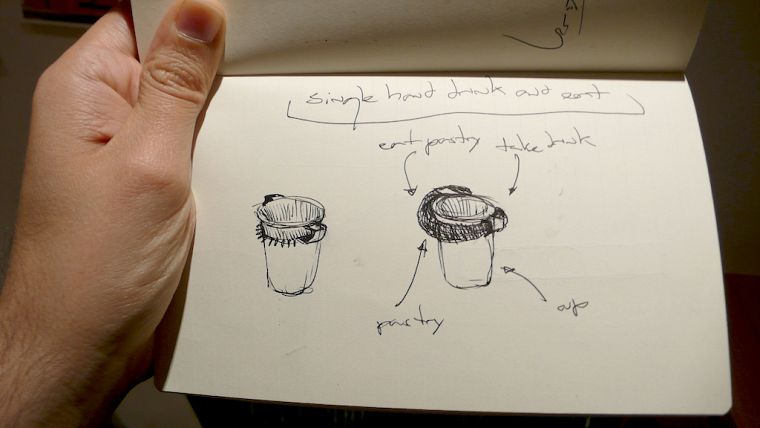 single hand drink and eat
eat pastry take drink
pastry
cup